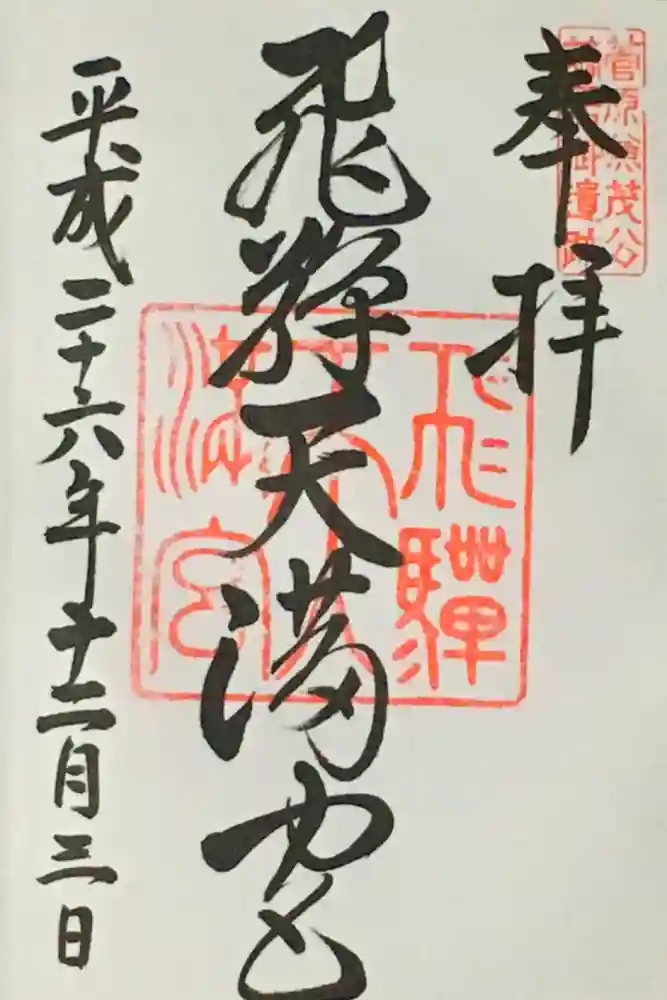 菅原兼茂公
御遺跡
奉拝
飛騨天満宮
飛騨天満宮
平成二十六年十二月三日